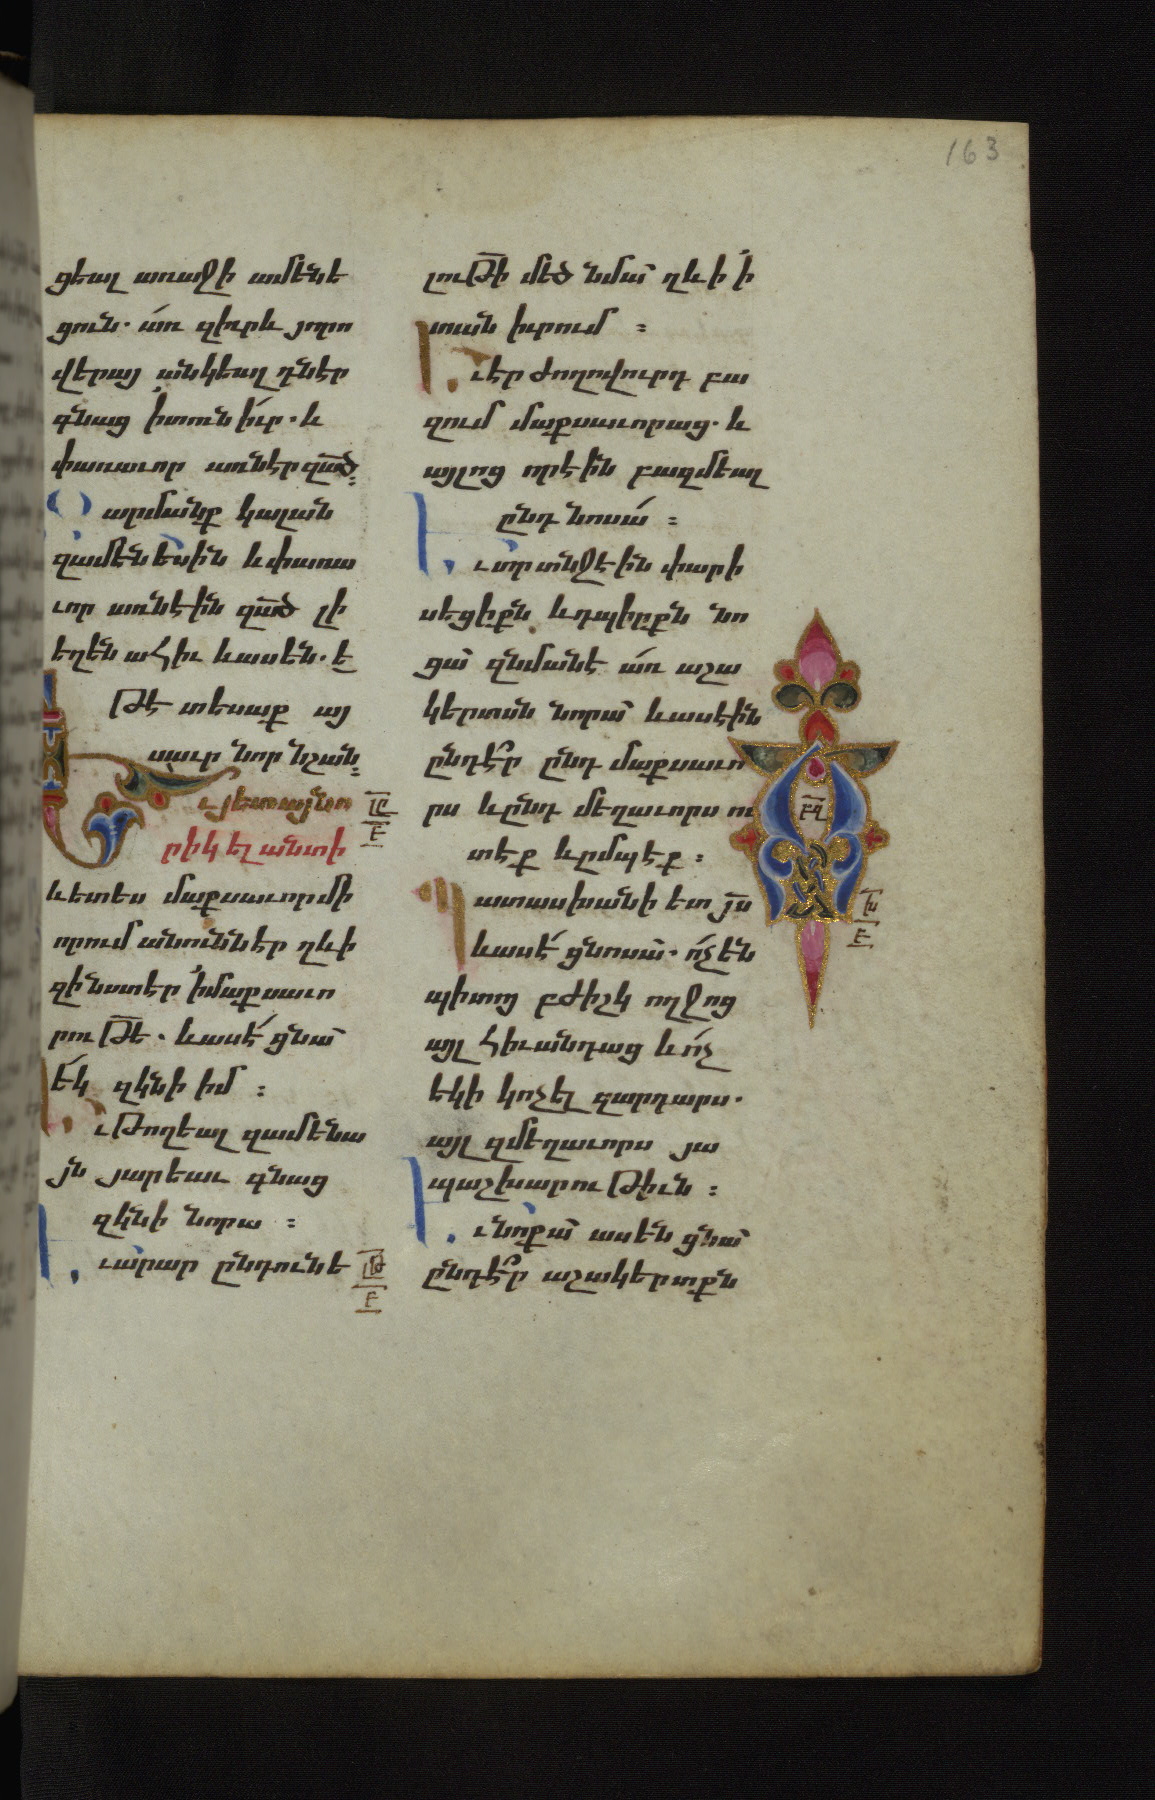 163
ցեալ առաջի ամենե
ցուն. առ զիւրև յորո
վերայ անկեալ դներ
գնաց ի տուն իւր. և
փառաւոր առներ զա՟ծ։
արմանք կալան
զամենեսին և փառա
ւոր առնէին զա՟ծ լի
եղեն ահիւ և ասեն. ե
թէ տեսաք այ
սաւր նոր նշան։
Եւ յետ այնո
րիկ ել անտի
և ետես մաքսաւոր մի
որում անուն էր ղևի
զի նստէր ի մաքսաւո
րութե՟. և ասէ ցնա՝
Եկ զկնի իմ ։
Եւ թողեալ զամենա
յն յարեաւ գնաց
զկնի նորա ։
Եւ արար ընդունե
լութի՟ մեծ նմա՝ ղևի ի
տան իւրում ։
Եւ էր ժողովուրդ բա
զում մաքսաւորաց. և
այլոց որ էին բազմեալ
ընդ նոսա ։
Եւ տրտնջէին փարի
սեցիքն և դպիրքն նո
ցա՝ զնմանէ առ աշա
կերտսն նորա՝ և ասէին
ընդէ՞ր ընդ մաքսաւո
րս և ընդ մեղաւորս ու
տէք և ըմպէք ։
Պատասխանի ետ յ՟ս
և ասէ ցնոսա՝. ոչ են
պիտոյ բժիշկ ողջոց
այլ հիւանդաց և ոչ
եկի կոչել զարդարս.
այլ զմեղաւորս յա
պաշխարութիւն ։
Եւ նոքա՝ ասեն ցնա՝
ընդէ՞ր աշակերտքն